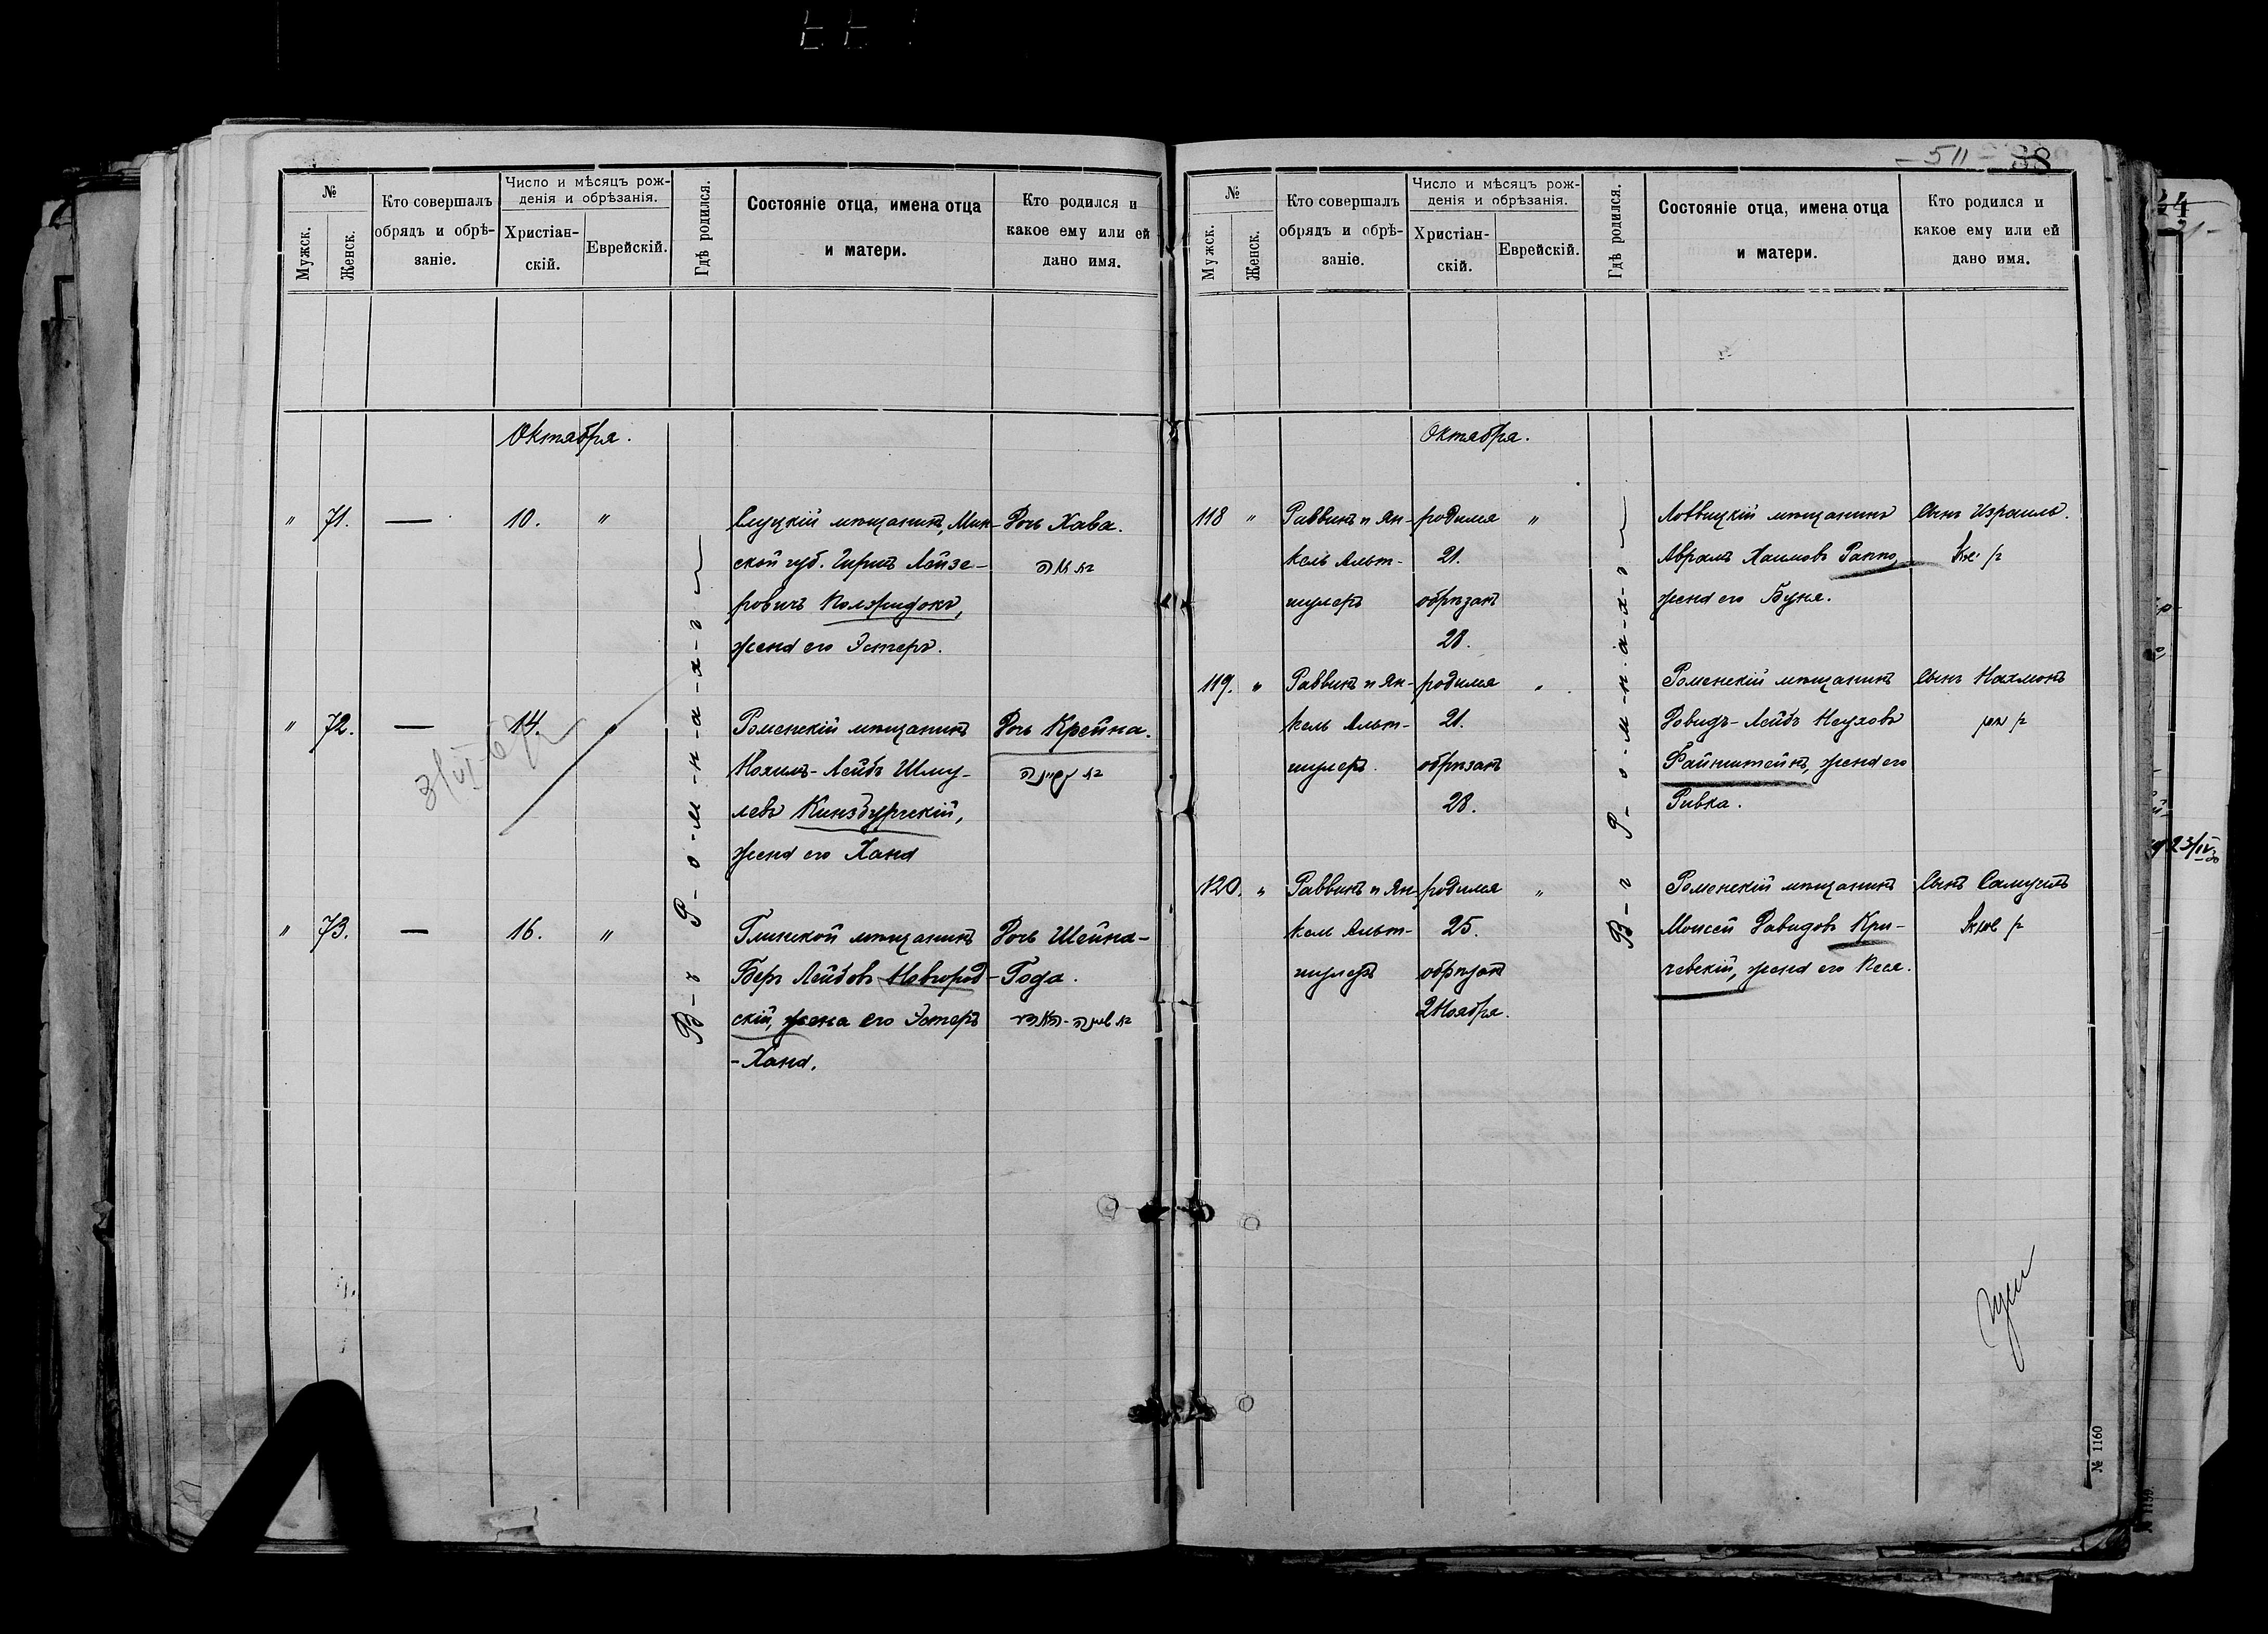 №
Мужск.
Женск.
Кто совершалъ обрядъ и обрѣзаніе.
Число и мѣсяцъ рожденія и обрѣзанія.
Христіанскій.
Еврейскій.
Гдѣ родился.
Состояніе отца, имена отца и матери.
Кто родился и какое ему или ей дано имя.
Октября.
" 71. — 10. "
Слуцкій мѣщанинъ, Мин-
ской губ. Гиршъ Лейзе-
ровичъ
жена его Эстеръ.
Дочь Хава.
" 72. — 14.
Роменскій мѣщанинъ
Нохимъ-Лейбъ Шму-
левъ Кинзбургскій,
жена его Хана
Дочь Крейна.
" 73. — 16. "
Глинской мѣщанинъ
Беръ Лейбовъ Новгород-
скій, жена его Эстеръ
-Хана.
Дочь Шейна-
Года.
В-ъ Р-о-м-н-а-х-ъ
- 511 -
88
№
Мужск.
Женск.
Кто совершалъ обрядъ и обрѣзаніе.
Число и мѣсяцъ рожденія и обрѣзанія.
Христіанскій.
Еврейскій.
Гдѣ родился.
Состояніе отца, имена отца и матери.
Кто родился и какое ему или ей дано имя.
Октября.
118 "
Раввинъ и Ян-
кель Альт-
шулеръ
родился "
21.
обрѣзанъ
28.
Авраамъ Хаимовъ Раппо,
жена его Буня.
Сынъ Израиль.
119. "
Раввинъ и Ян-
кель Альт-
шулеръ.
родился "
21.
обрѣзанъ
28.
Роменскій мѣщанинъ
Довидъ-Лейбъ Неуховъ
Файнштейнъ, жена его
Ривка.
Сынъ Нахманъ
120. "
Раввинъ и Ян-
кель Альт-
шулеръ
родился "
25.
обрѣзанъ
2 Ноября.
Роменскій мѣщанинъ
Моисей Давидовъ Кри-
чевскій, жена его Песя.
Сынъ Самуилъ
В-ъ Р-о-м-н-а-х-ъ
№ 1160